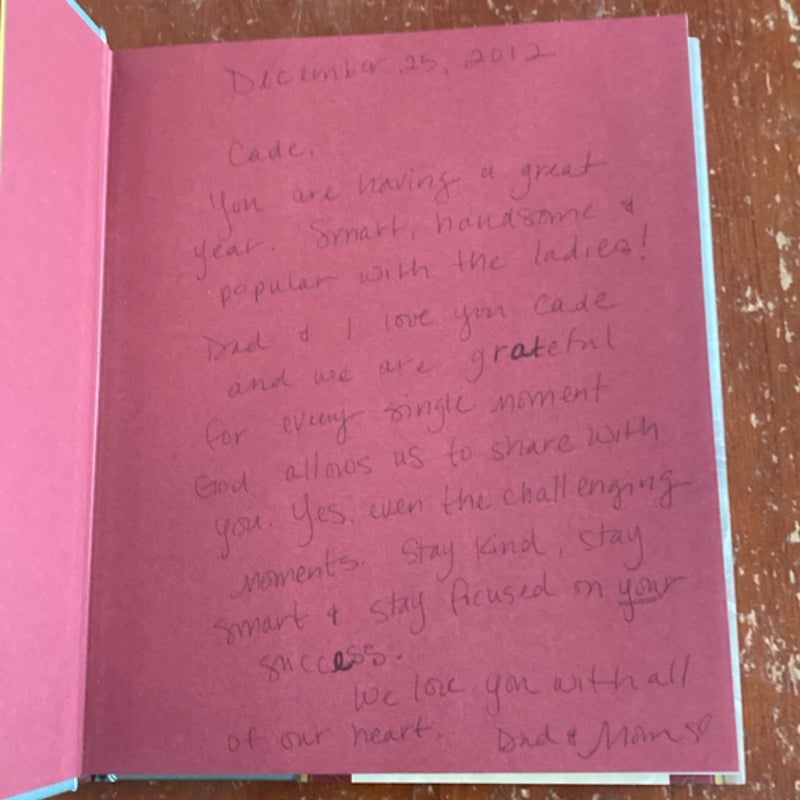 December 25, 2012
Cade,
You are having a great
year. Smart, handsome &
popular with the ladies!
Dad & I love you Cade
and we are grateful
for every single moment
God allows us to share with
you. Yes, even the challenging
moments. Stay kind, stay
smart & stay focused on your
success.
We love you with all
of our heart. Dad & Mom ♡